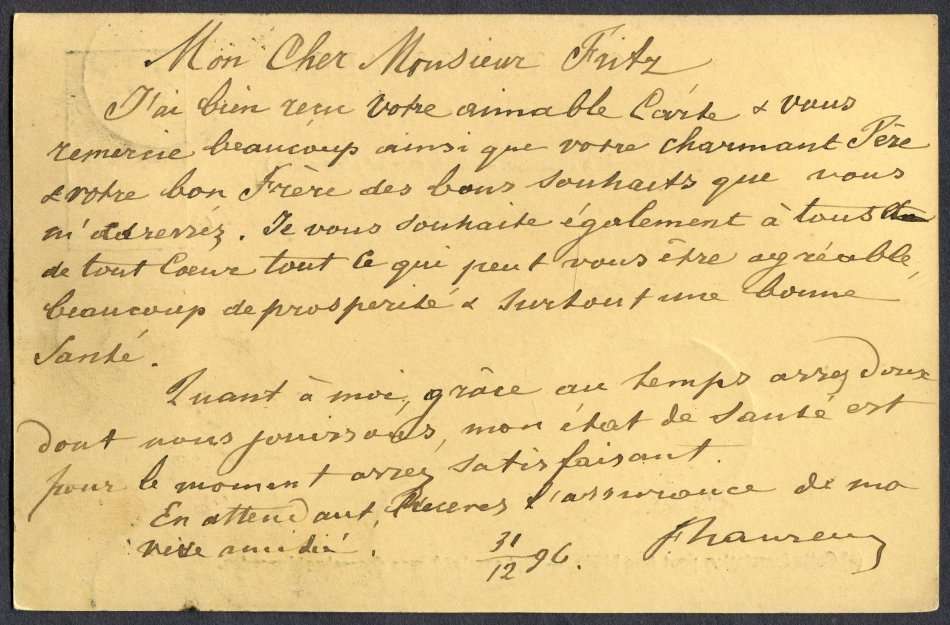 Mon Cher Monsieur Fritz
J'ai bien reçu votre aimable Carte & vous
remercie beaucoup ainsi que votre charmant Père
& votre bon Frère des bons souhaits que vous
m'adressez. Je vous souhaite également à tous
de tout Coeur tout ce qui peut vous être agréable,
beaucoup de prosperité & surtout une bonne
Santé.
Quant à moi, grâce au temps assez doux
dont nous jouissons, mon état de Santé est
pour le moment assez satisfaisant.
En attendant, l'assurance de ma
amitié. 31/12 96.